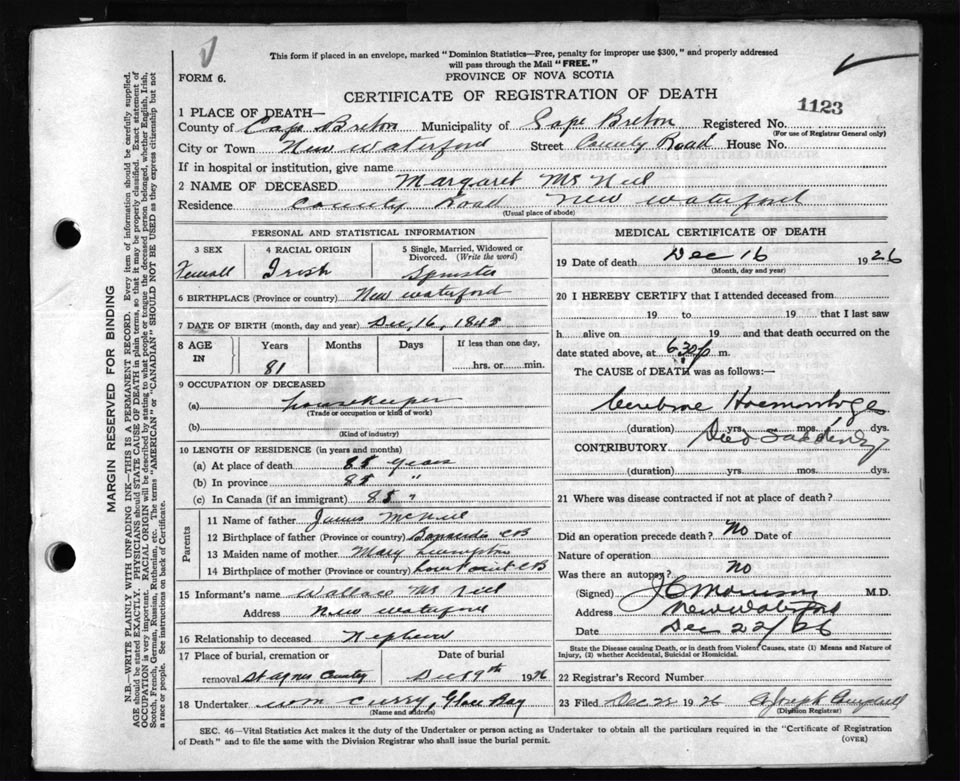 This form if placed in an envelope, marked "Dominion Statistics—Free, penalty for improper use $300," and properly addressed
will pass through the Mail "FREE."
FORM 6.
PROVINCE OF NOVA SCOTIA
CERTIFICATE OF REGISTRATION OF DEATH
1123
1 PLACE OF DEATH—
County of Cape Breton Municipality of Cape Breton Registered No.
(For use of Registrar General only)
City or Town New Waterford Street County Road House No.
If in hospital or institution, give name
2 NAME OF DECEASED Margaret McNeil
Residence County Road New Waterford
(Usual place of abode)
PERSONAL AND STATISTICAL INFORMATION
3 SEX 4 RACIAL ORIGIN 5 Single, Married, Widowed or Divorced. (Write the word)
Femall Irish Spinster
6 BIRTHPLACE (Province or country) New Waterford
7 DATE OF BIRTH (month, day and year) Dec 16, 1845
8 AGE IN Years Months Days If less than one day,
81 hrs. or min.
9 OCCUPATION OF DECEASED
(a) housekeeper
(Trade or occupation or kind of work)
(b)
(Kind of industry)
10 LENGTH OF RESIDENCE (in years and months)
(a) At place of death 85 years
(b) In province 85 "
(c) In Canada (if an immigrant) 85 "
Parents
11 Name of father James McNeil
12 Birthplace of father (Province or country) CB
13 Maiden name of mother Mary
14 Birthplace of mother (Province or country) CB
15 Informant's name Wallace McNeil
Address New Waterford
16 Relationship to deceased Nephew
17 Place of burial, cremation or Date of burial
removal St Agnes Dec 19th 1926
18 Undertaker Wm Curry, Glace Bay
(Name and address)
MEDICAL CERTIFICATE OF DEATH
19 Date of death Dec 16 1926
(Month, day and year)
20 I HEREBY CERTIFY that I attended deceased from
19 to 19 that I last saw
h alive on 19 and that death occurred on the
date stated above, at 630 p m.
The CAUSE of DEATH was as follows:—
Cerebral Haemorrhage
(duration) yrs. mos. dys.
Died Suddenly
CONTRIBUTORY
(duration) yrs. mos. dys.
21 Where was disease contracted if not at place of death?
Did an operation precede death? No Date of
Nature of operation
Was there an autopsy? No
(Signed) M.D.
Address New Waterford
Date Dec 22/26
State the Disease causing Death, or in death from Violent Causes, state (1) Means and Nature of
Injury, (2) whether Accidental, Suicidal or Homicidal.
22 Registrar's Record Number
23 Filed Dec 1926 Joseph
(Division Registrar)
SEC. 46—Vital Statistics Act makes it the duty of the Undertaker or person acting as Undertaker to obtain all the particulars required in the "Certificate of Registration
of Death" and to file the same with the Division Registrar who shall issue the burial permit.
(OVER)
MARGIN RESERVED FOR BINDING
N.B.—WRITE PLAINLY WITH UNFADING INK—THIS IS A PERMANENT RECORD. Every item of information should be carefully supplied.
AGE should be stated EXACTLY. PHYSICIANS should STATE CAUSE OF DEATH in plain terms, so that it may be properly classified. Exact statement of
OCCUPATION is very important. RACIAL ORIGIN will be described by stating to what people or tongue the deceased person belonged, whether English, Irish,
Scotch, French, German, Russian, Ruthenian, etc. The terms "AMERICAN" or "CANADIAN" SHOULD NOT BE USED as they express citizenship but not
a race or people. See instructions on back of Certificate.